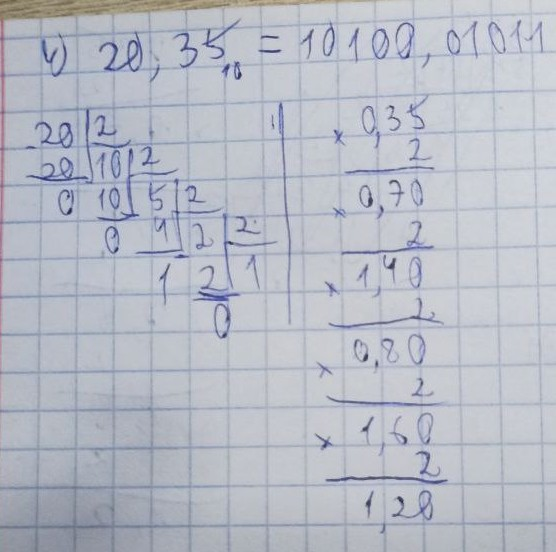 4) 20,35₁₀ = 10100,01011
20 | 2
20 | 10 | 2
0 10 | 5 | 2
0 4 | 2 | 2
1 2 | 1
0
× 0,35
2
× 0,70
2
× 1,40
2
× 0,80
2
× 1,60
2
1,20